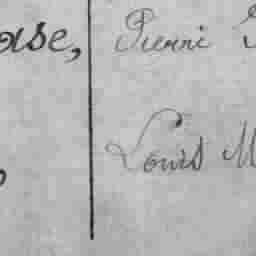 ase, Pierre
Louis M